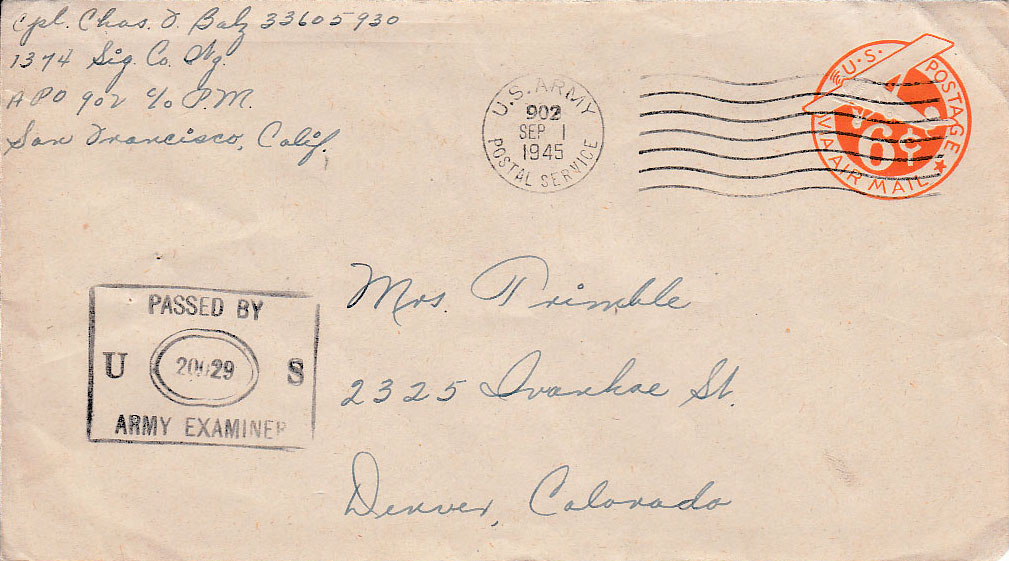 Cpl. Chas. J. Balz 33605930
1374 Sig. Co. Wg.
APO 902 c/o P.M.
San Francisco, Calif.
U.S. ARMY
902
SEP 1
1945
POSTAL SERVICE
U.S. POSTAGE
6¢
VIA AIR MAIL
PASSED BY
U S
ARMY EXAMINER
Mrs. Trimble
2325 Ivanhoe St.
Denver, Colorado